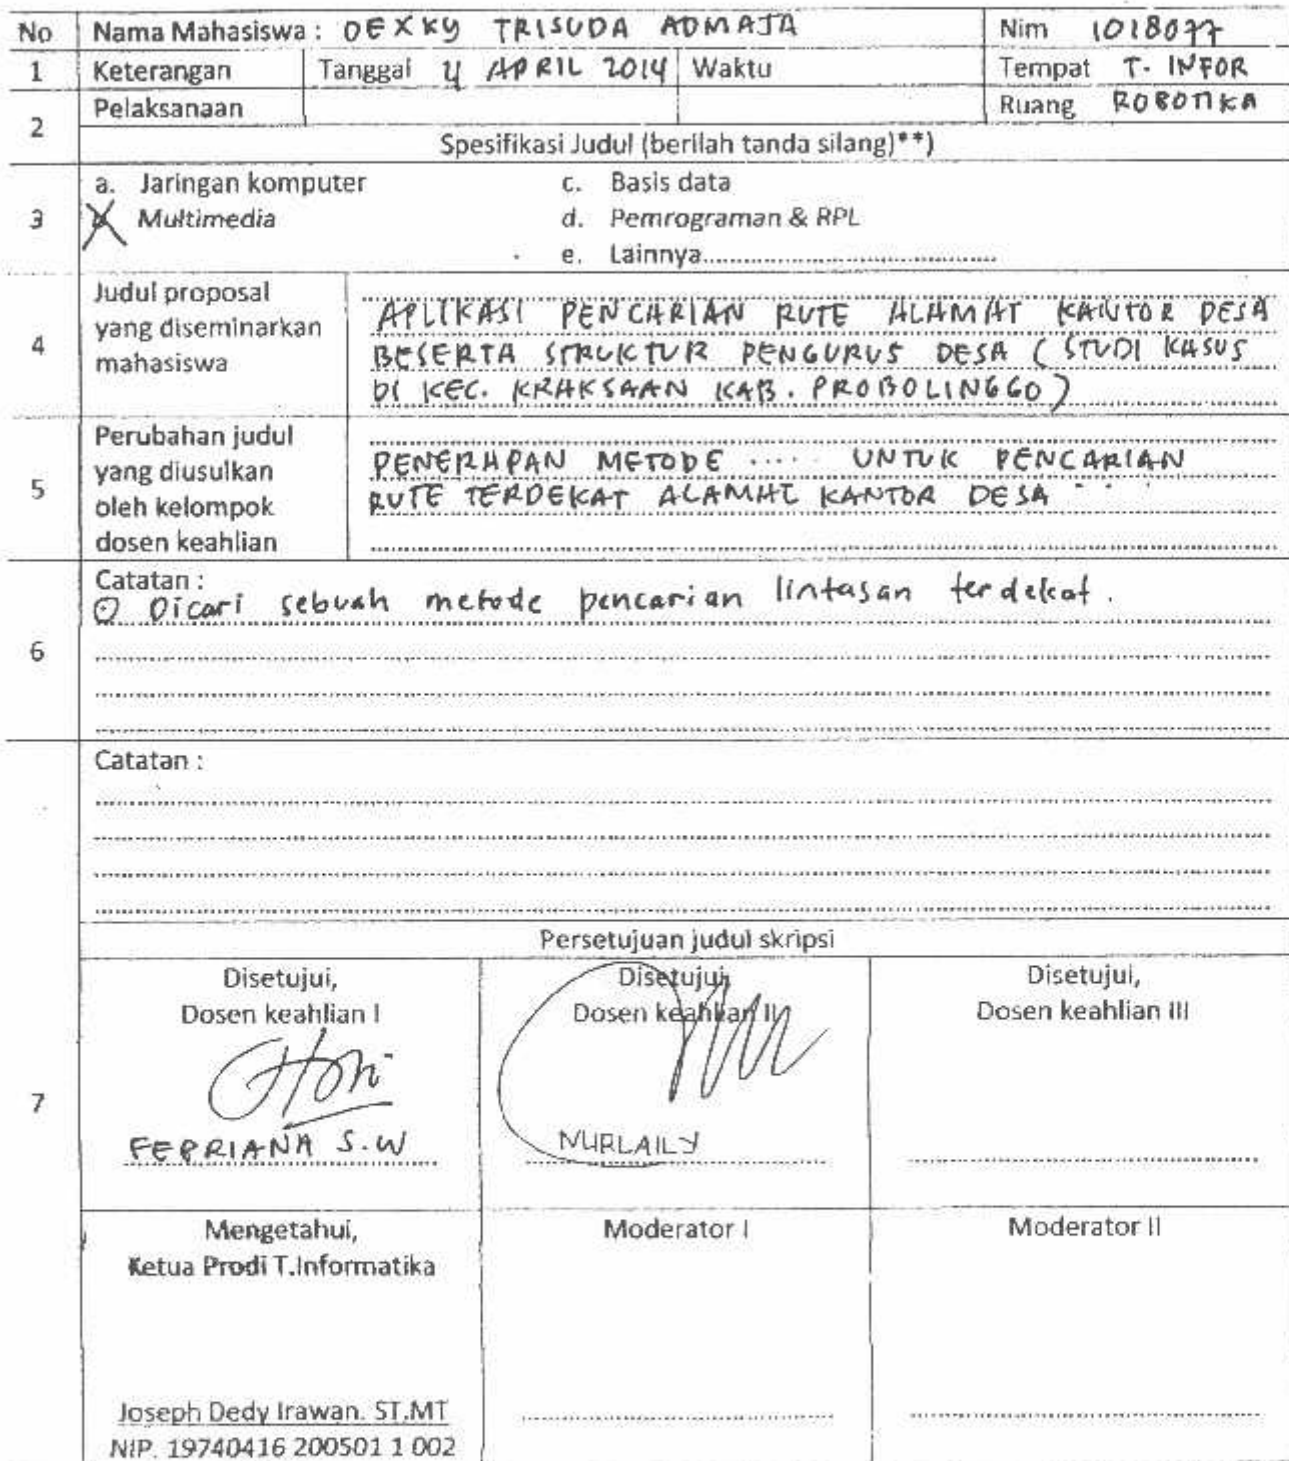 No Nama Mahasiswa : DEXKY TRISUDA ADMAJA Nim 1018077
1 Keterangan Tanggal 4 APRIL 2014 Waktu Tempat T. INFOR
2 Pelaksanaan Ruang ROBOTIKA
Spesifikasi Judul (berilah tanda silang)**)
3 a. Jaringan komputer c. Basis data
Multimedia d. Pemrograman & RPL
e. Lainnya
4 Judul proposal yang diseminarkan mahasiswa
APLIKASI PENCARIAN RUTE ALAMAT KANTOR DESA
BESERTA STRUKTUR PENGURUS DESA (STUDI KASUS
DI KEC. KRAKSAAN KAB. PROBOLINGGO)
5 Perubahan judul yang diusulkan oleh kelompok dosen keahlian
PENERAPAN METODE ..... UNTUK PENCARIAN
RUTE TERDEKAT ALAMAT KANTOR DESA ...
6 Catatan :
Dicari sebuah metode pencarian lintasan terdekat.
Catatan :
Persetujuan judul skripsi
7 Disetujui,
Dosen keahlian I
FEBRIANA S.W
Disetujui,
Dosen keahlian II
NURLAILY
Disetujui,
Dosen keahlian III
Mengetahui,
Ketua Prodi T.Informatika
Joseph Dedy Irawan. ST.MT
NIP. 19740416 200501 1 002
Moderator I
Moderator II